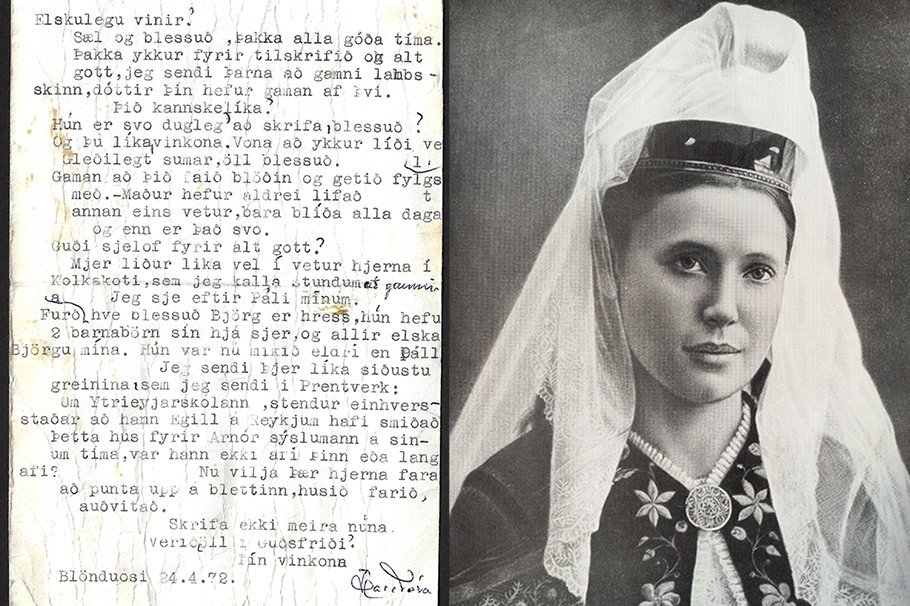 Elskulegu vinir!
Sæl og blessuð ,þakka alla góða tíma.
Þakka ykkur fyrir tilskrifið og alt
gott,jeg sendi þarna að gamni lambs-
skinn,dóttir þín hefur gaman af því.
Þið kannske líka?
Hún er svo dugleg að skrifa,blessuð ?
Og þú líka,vinkona.Vona að ykkur líði ve
Gleðilegt sumar,öll blessuð. (l.
Gaman að þið faið blöðin og getið fylgs
með.-Maður hefur aldrei lifað t
annan eins vetur,bara blíða alla daga
og enn er það svo.
Guði sjelof fyrir alt gott?
Mjer liður lika vel í vetur hjerna í
Kolkakoti,sem jeg kalla stundum að gamni
Jeg sje eftir Páli mínum.
Furð hve blessuð Björg er hress,hún hefu
2 barnabörn sín hjá sjer,og allir elska
Björgu mína. Hún var nú mikið eldri en Páll
Jeg sendi þjer líka síðustu
greinina,sem jeg sendi i Prentverk:
Um Ytrieyjarskólann ,stendur einhvers-
staðar að hann Egill á Reykjum hafi smiðað
Þetta hús fyrir Arnór sýslumann a sín-
um tíma,var hann ekki afi þinn eða lang
afi? Nu vilja þær hjerna fara
að punta upp a blettinn,húsið farið,
auðvitað.
Skrifa ekki meira núna.
Verið öll i Guðsfriði?
Þín vinkona
Blönduosi 24.4.72.